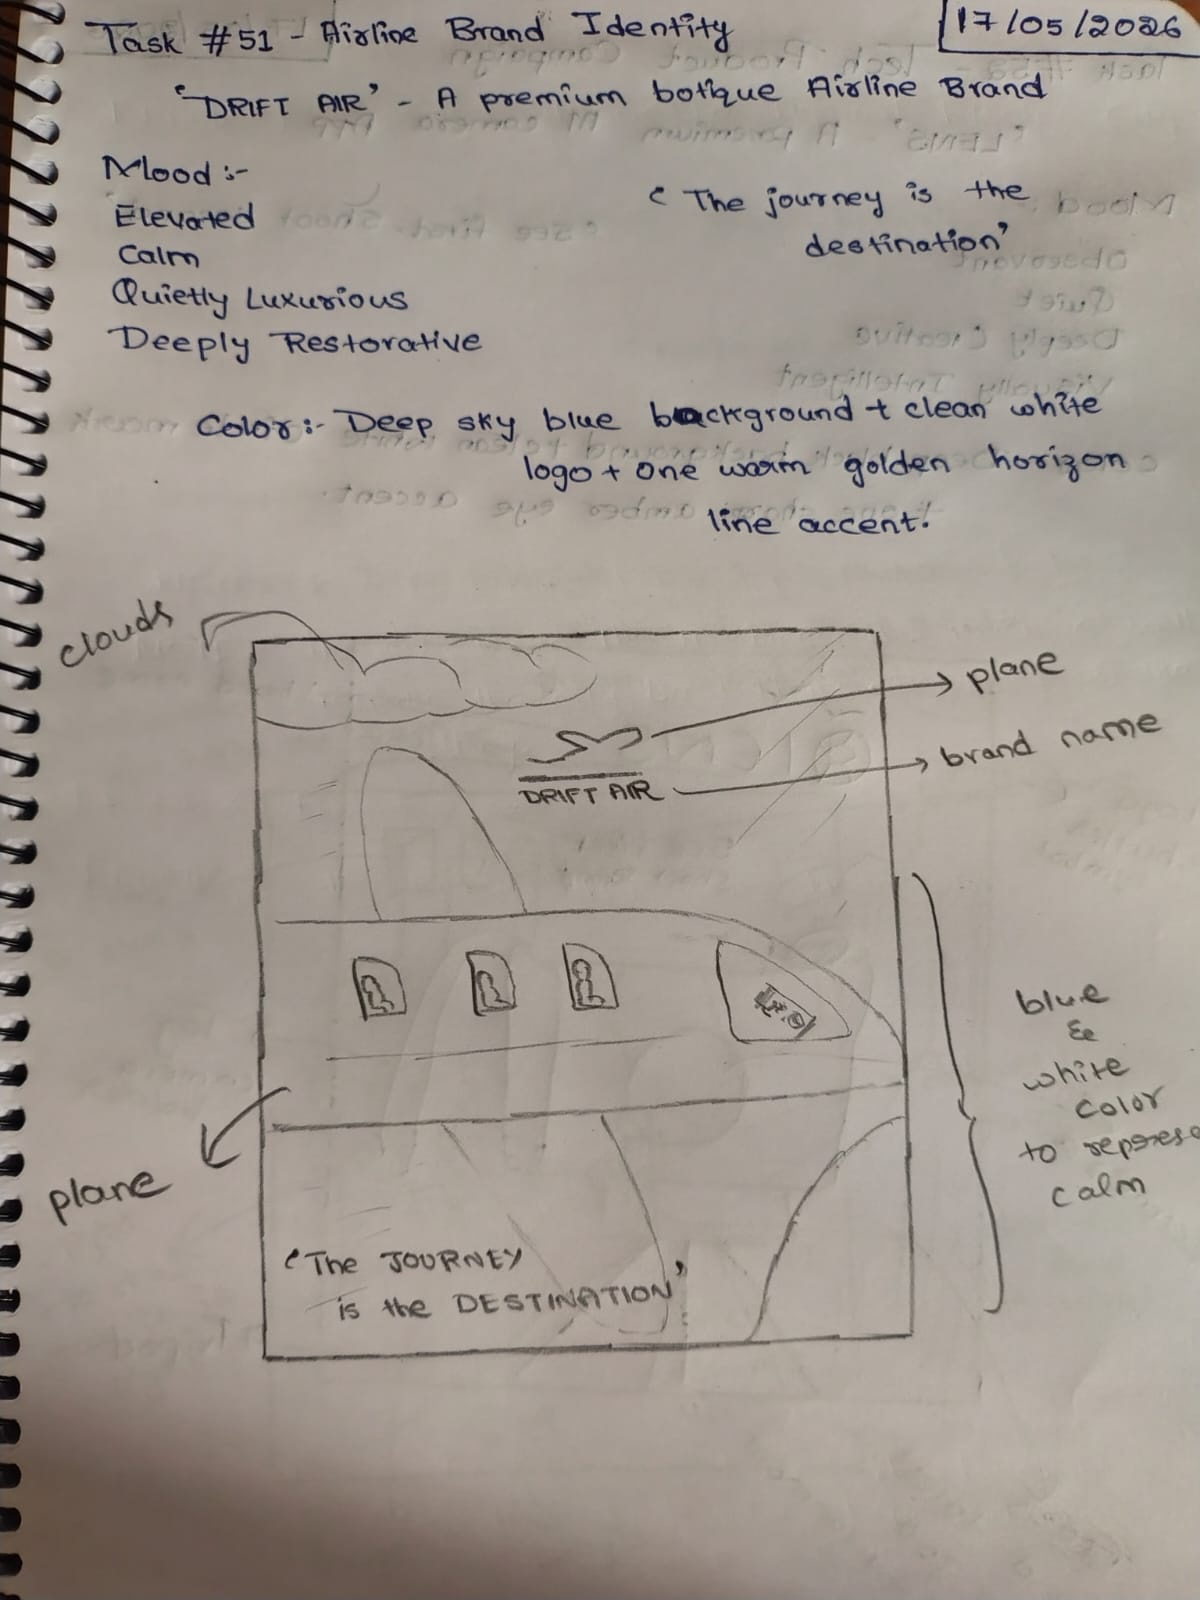 Task #51 - Airline Brand Identity
17/05/2026
'DRIFT AIR' - A premium botique Airline Brand
Mood :-
Elevated
Calm
Quietly Luxurious
Deeply Restorative
'The journey is the
destination'
Color:- Deep sky blue background + clean white
logo + one warm golden horizon
line accent.
clouds
plane
brand name
DRIFT AIR
blue
&
white
color
to
calm
plane
'The JOURNEY
is the DESTINATION'